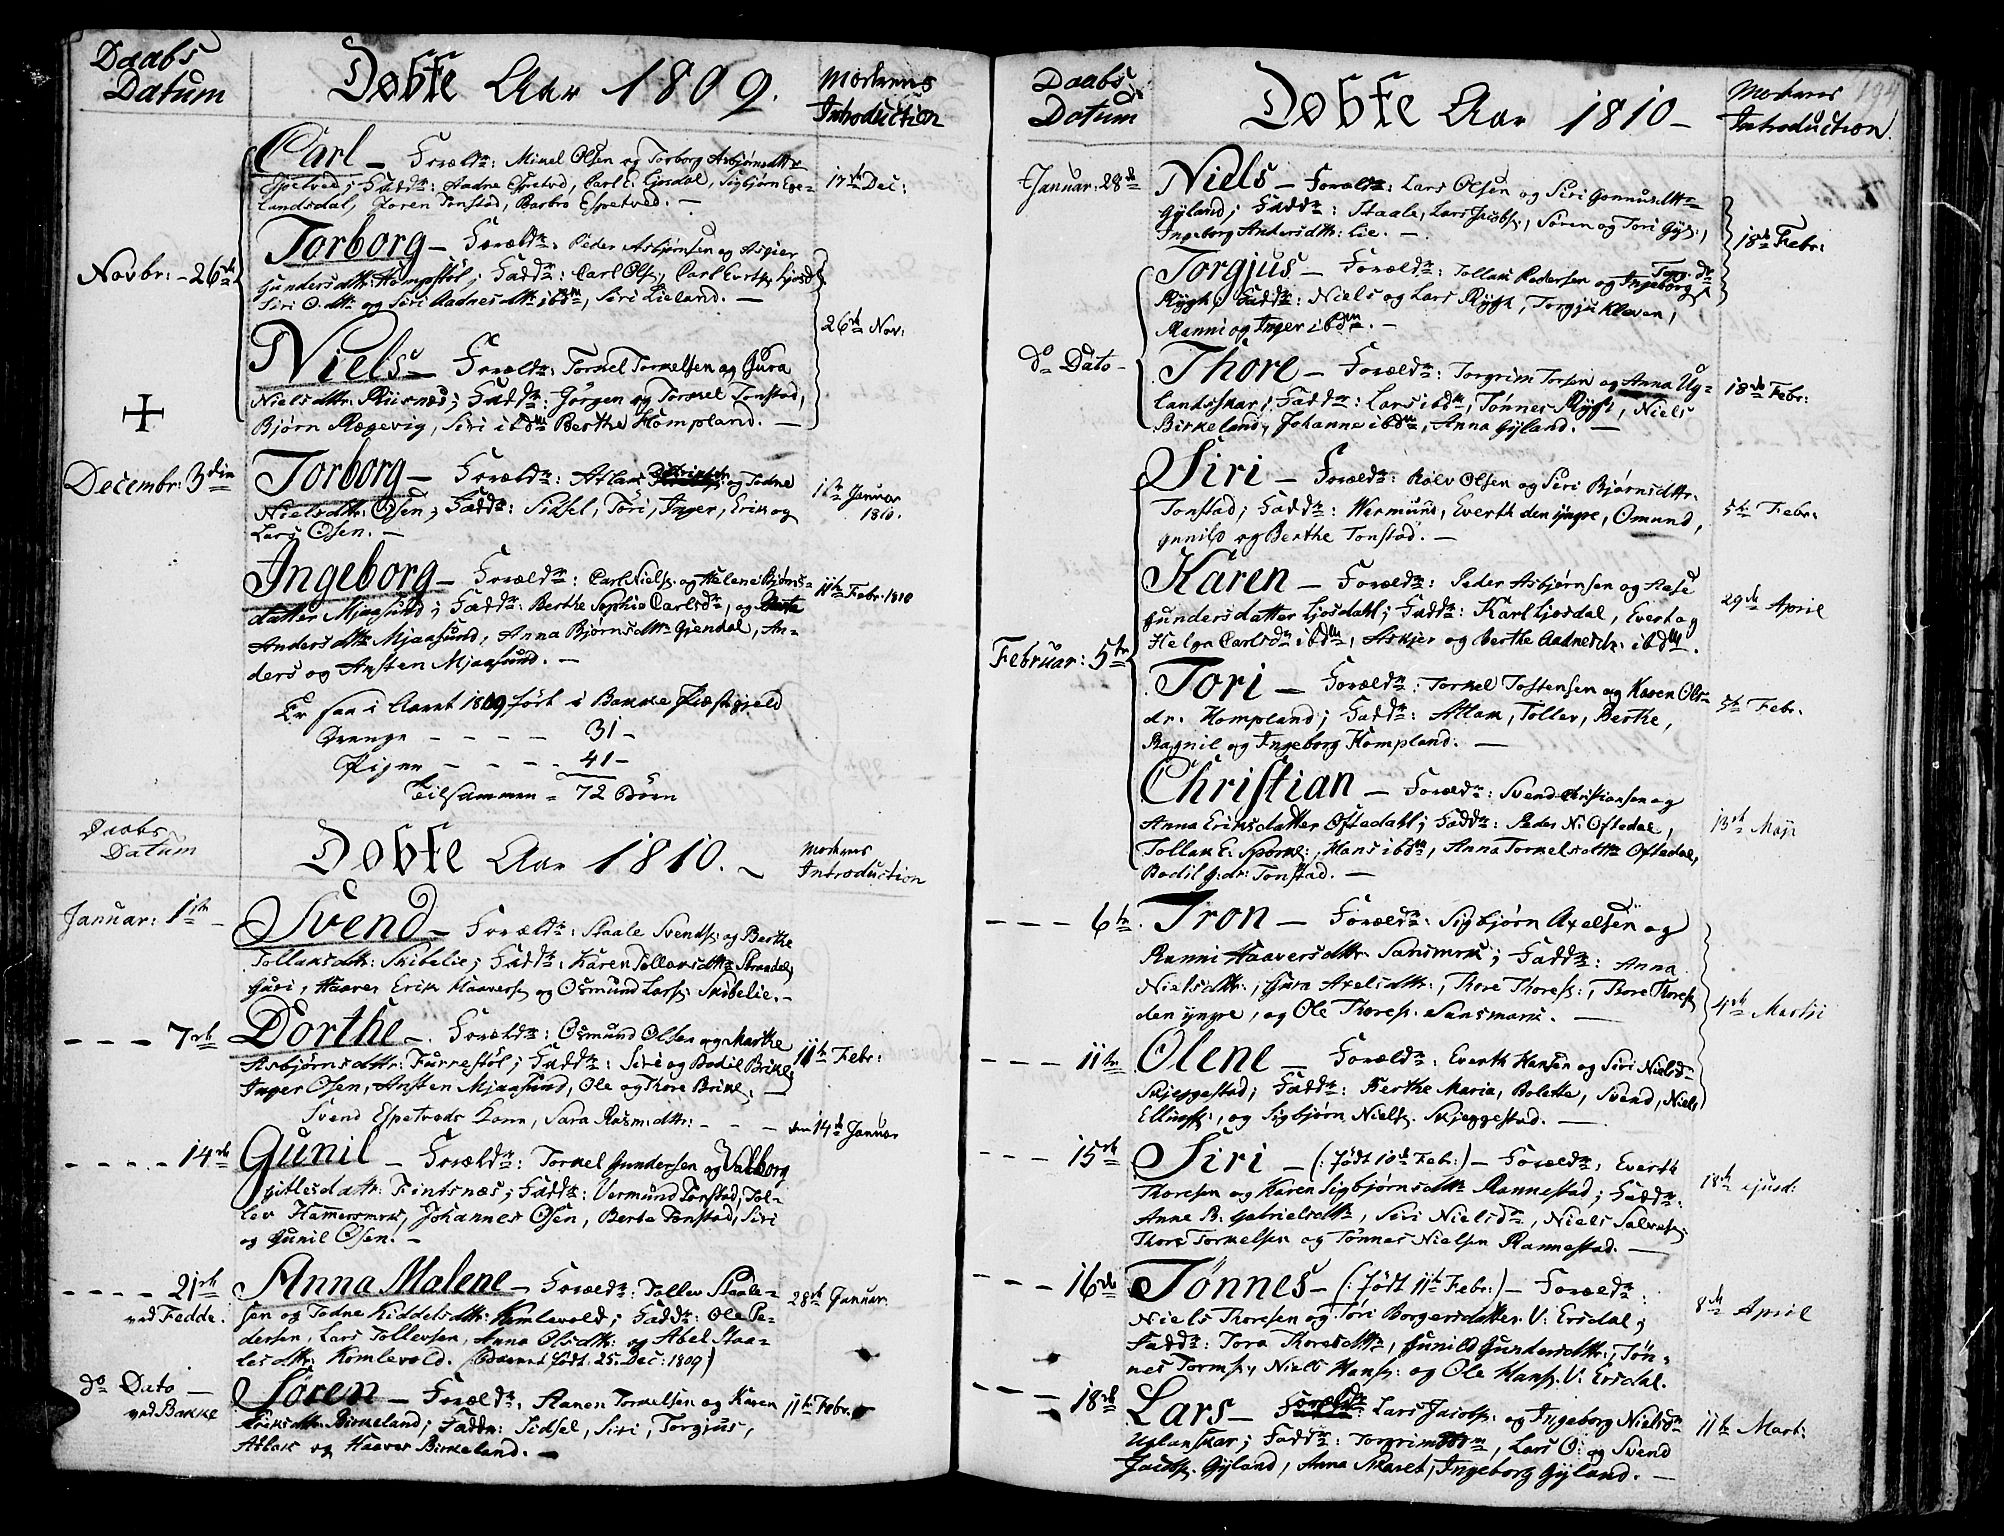 Daabs
Datum
Døbte Aar 1809.
Moderens
Introduction
Carl — Foræld: Mikel Olsen og Torborg Asbjørnsdttr
Espetved; Fadd: Aadne Espetved, Carl E. Liosdal, Sigbjørn Ege-
landsdal, Karen Tonstad, Barbro Espetved. —
17de Dec:
Torborg — Foræld: Peder Asbjørnsen og Asgier
Novbr: - 26de
Gundersdttr: Hompstøl; Fadd: Carl Ols, Carl Everts, Liosd
Siri O. dtt og Siri Aadnesdtt ibdm, Siri Lieland. —
26de Nov:
Niels — Foræld: Torkel Torkelsen og Gura
Nielsdttr: Risnæs; Fadd: Jørgen og Torkel Tonstad,
Bjørn Rægevig, Siri ibdm Berthe Hompland. —
Decembr: 3die
Torborg — Foræld: Atlak og Todne
Nielsdttr: Osen; Fadd: Sidsel, Tori, Inger, Erik og
Lars Osen. —
1ste Januar
1810.
Ingeborg — Foræld: Carl Niels. og Helene Bjørns-
datter Mjaasund; Fadd: Berthe Sophia Carlsd, og
Andersdttr Mjaasund, Anna Bjørnsdttr Gjendal, An-
ders og Ansten Mjaasund. —
11te Febr. 1810
Er saa i Aaret 1809 født i Bakke Præstegield
Drenge - - - - - 31 -
Piger - - - - - 41 -
Tilsammen = 72 Børn
Daabs
Datum
Døbte Aar 1810. —
Moderens
Introduction
Januar: 1ste —
Svend — Foræld: Staale Svends. og Berthe
Tollaksdttr: Skibelie; Fadd: Karen Tollaksdttr Strandel,
Guri, Haaver Erik Haavers og Osmund Lars. Skibelie. —
- - - - 7de
Dorthe — Foræld: Osmund Olsen og Marthe
Asbjørnsdttr: Furrestøl; Fadd: Siri og Bodil Brike,
Inger Osen, Ansten Mjaasund, Ole og Thore Brike. —
11te Febr:
Svend Espetveds Kone, Sara Rasm:dttr: - - - den 14de Januar
- - - - 14de
Gunil — Foræld: Torkel Gundersen og Valborg
Gitlesdattr: Fintsnæs; Fadd: Vermund Tonstad, Tol-
lev Hammersmrk, Johannes Osen, Berte Tonstad, Siri
og Gunil Osen. —
- - - - 21de
ved Fedde.
Anna Malene — Foræld: Tollev Staale-
sen og Todne Kiddelsdttr: Kemlevold; Fadd: Ole Pe-
dersen, Lars Tollevsen, Anna Olsdttr: og Abel Staa-
lesdttr: Komlevold. (Barnet født: 25. Dec: 1809)
28de Januar
do Dato —
ved Bakke
Søren — Foræld: Aanen Torkelsen og Karen
Larsdttr: Birkeland; Fadd: Sidsel, Siri, Torgius,
Atlak og Haaver Birkeland. —
11te Febr:
Daabs
Datum
Døbte Aar 1810 —
Moderens
Introduction.
194
Januar: 28de
Niels — Foræld: Lars Olsen og Siri Gonnusdttr
Gyland; Fadd: Staale, Lars Jacobs., Søren og Tori Gyl:,
Ingeborg Andersdttr: Lie. —
18de Febr:
Torgjus — Foræld: Tollak Pedersen og Ingeborg Torg: dr
Rygh; Fadd: Niels og Lars Rygh, Torgju Kleven,
Ranni og Inger ibdm. —
do Dato —
Thore — Foræld: Torgrim Torsen og Anna Ug-
landsskar; Fadd: Lars ibdm, Tønnes Rygh, Niels
Birkeland, Johanne ibdm, Anna Gyland. —
18de Febr:
Siri — Foræld: Rolv Olsen og Siri Bjørnsdttr.
Tonstad; Fadd: Wermund, Everth den yngre, Omund,
Gunild og Berthe Tonstad. —
5te Febr:
Karen — Foræld: Peder Asbjørnsen og Aase
Gundersdatter Liosdahl; Fadd: Karl Liosdal, Evert og
Helga Carlsd ibdm, Askjer og Berthe Aadnesdtr: ibdm.
29de April
Februar: 5te
Tori — Foræld: Torkel Tostensen og Karen Ols-
dr. Hompland; Fadd: Atlak, Tollev, Berthe,
Ragnil og Ingeborg Hompland. —
5te Febr.
Christian — Foræld: Svend Christiansen og
Anna Eriksdatter Oftedahl; Fadd: Peder N. Oftedal,
Tollak E. Sporkl:, Hans ibdm, Anna Torkelsdttr Oftedal,
Bodil G: dr: Tonstad. —
13de Maji
- - - 6te.
Tron — Foræld: Sigbjørn Axelsen og
Ranni Haaversdttr. Sansmrk; Fadd: Anna
Nielsdttr:, Gura Axelsdttr:, Thore Thores:, Thore Thores
den yngre, og Ole Thores. Sansmark. —
4de Martii
- - - 11te
Olene — Foræld: Everth Hansen og Siri Nielsd
Skjeggestad; Fadd: Berthe Maria, Bolette, Svend, Niels
Ellings:, og Sigbjørn Niels. Skjeggestad. —
- - - 15de
Siri — (: født 10de Feb:) — Foræld: Everth
Thoresen og Karen Sigbjørnsdttr Rannestad; Fadd:
Anne B. Gabrielsdttr, Siri Nielsd, Niels Salves.
Thore Torkelsen og Tønnes Nielsen Rannestad. —
18de ejusd:
- - - 16de
Tønnes — (: født 11te Febr:) — Foræld:
Niels Thoresen og Tori Borgersdatter V: Ersdal;
Fadd: Tora Thoresdttr, Gunild Gundersdttr:, Tøn-
nes Torms., Niels Hans: og Ole Hans. V: Ersdal.
8de April
- - - 18de
Lars — Foræld: Lars Jacobs. og Ingeborg Nielsd
Uglanskar; Fadd: Torgrim ibdm, Lars O: og Svend
Jacobs. Gyland, Anna Skaret, Ingeborg Gyland. —
11te Mart: